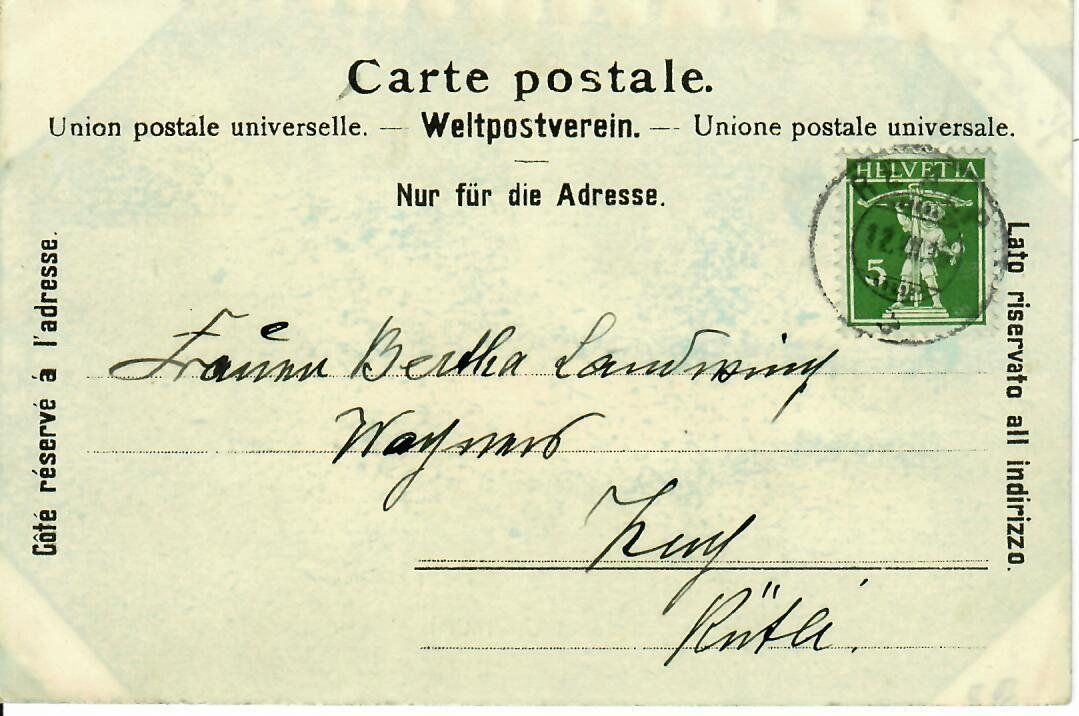 Carte postale.
Union postale universelle. — Weltpostverein. — Unione postale universale.
Nur für die Adresse.
HELVETIA
5
Côté réservé á l'adresse.
Lato riservato all indirizzo.
Frauen Bertha Landwing
Wagners
Zug
Rütli.